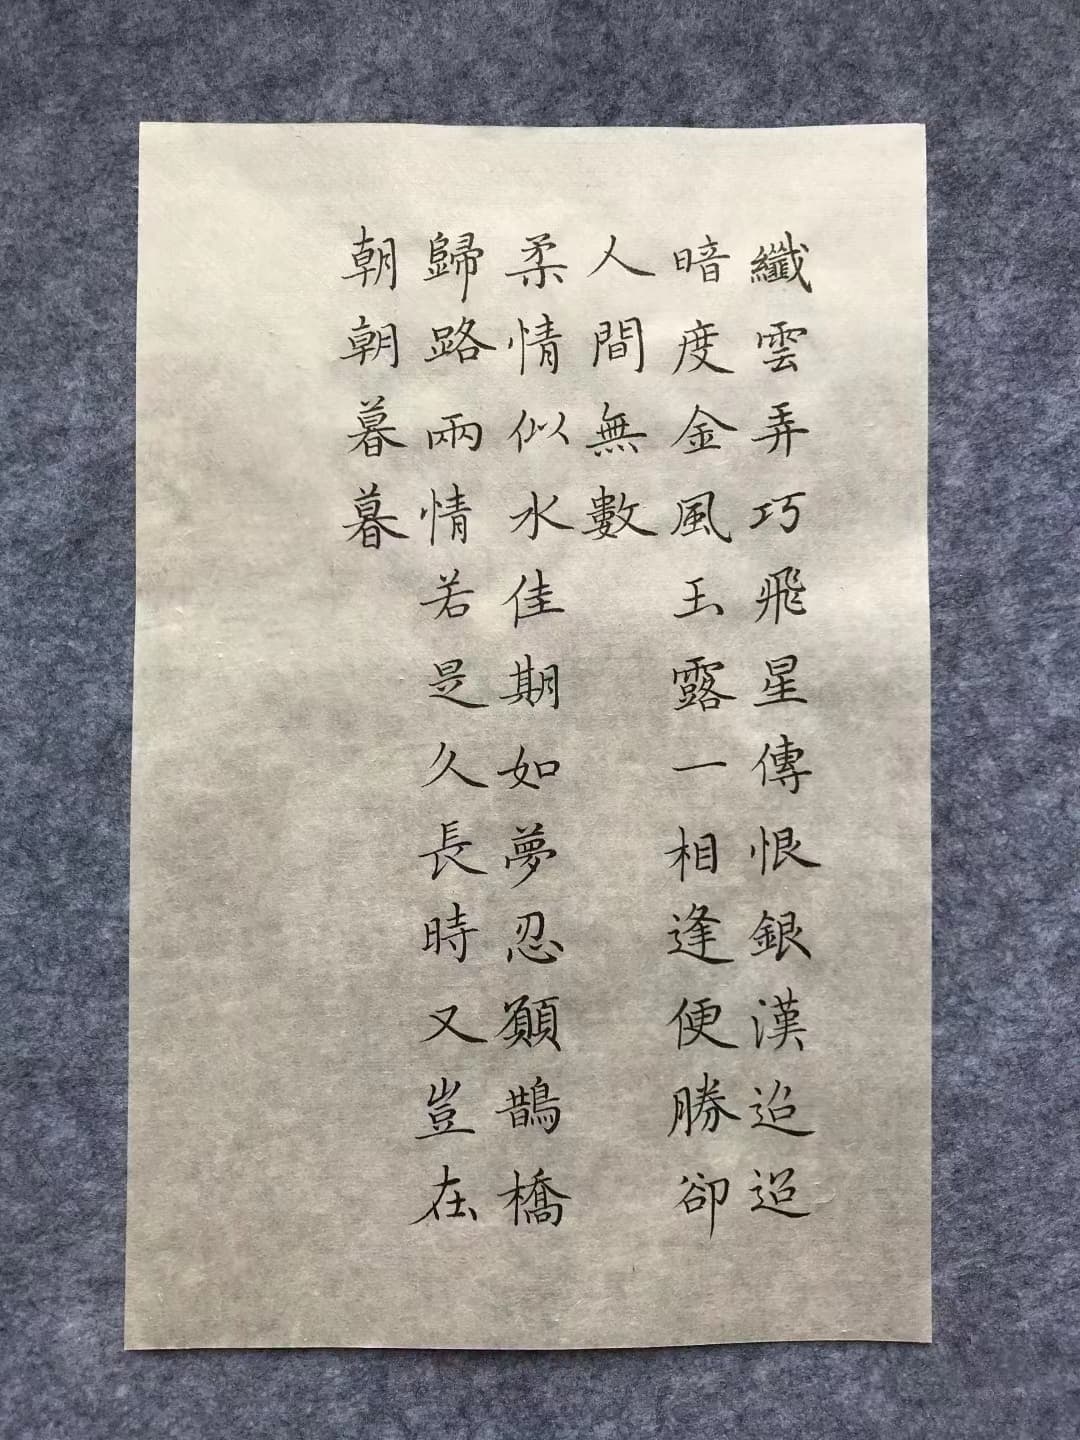 纖雲弄巧飛星傳恨銀漢迢迢
暗度金風玉露一相逢便勝卻
人間無數
柔情似水佳期如夢忍顧鵲橋
歸路兩情若是久長時又豈在
朝朝暮暮